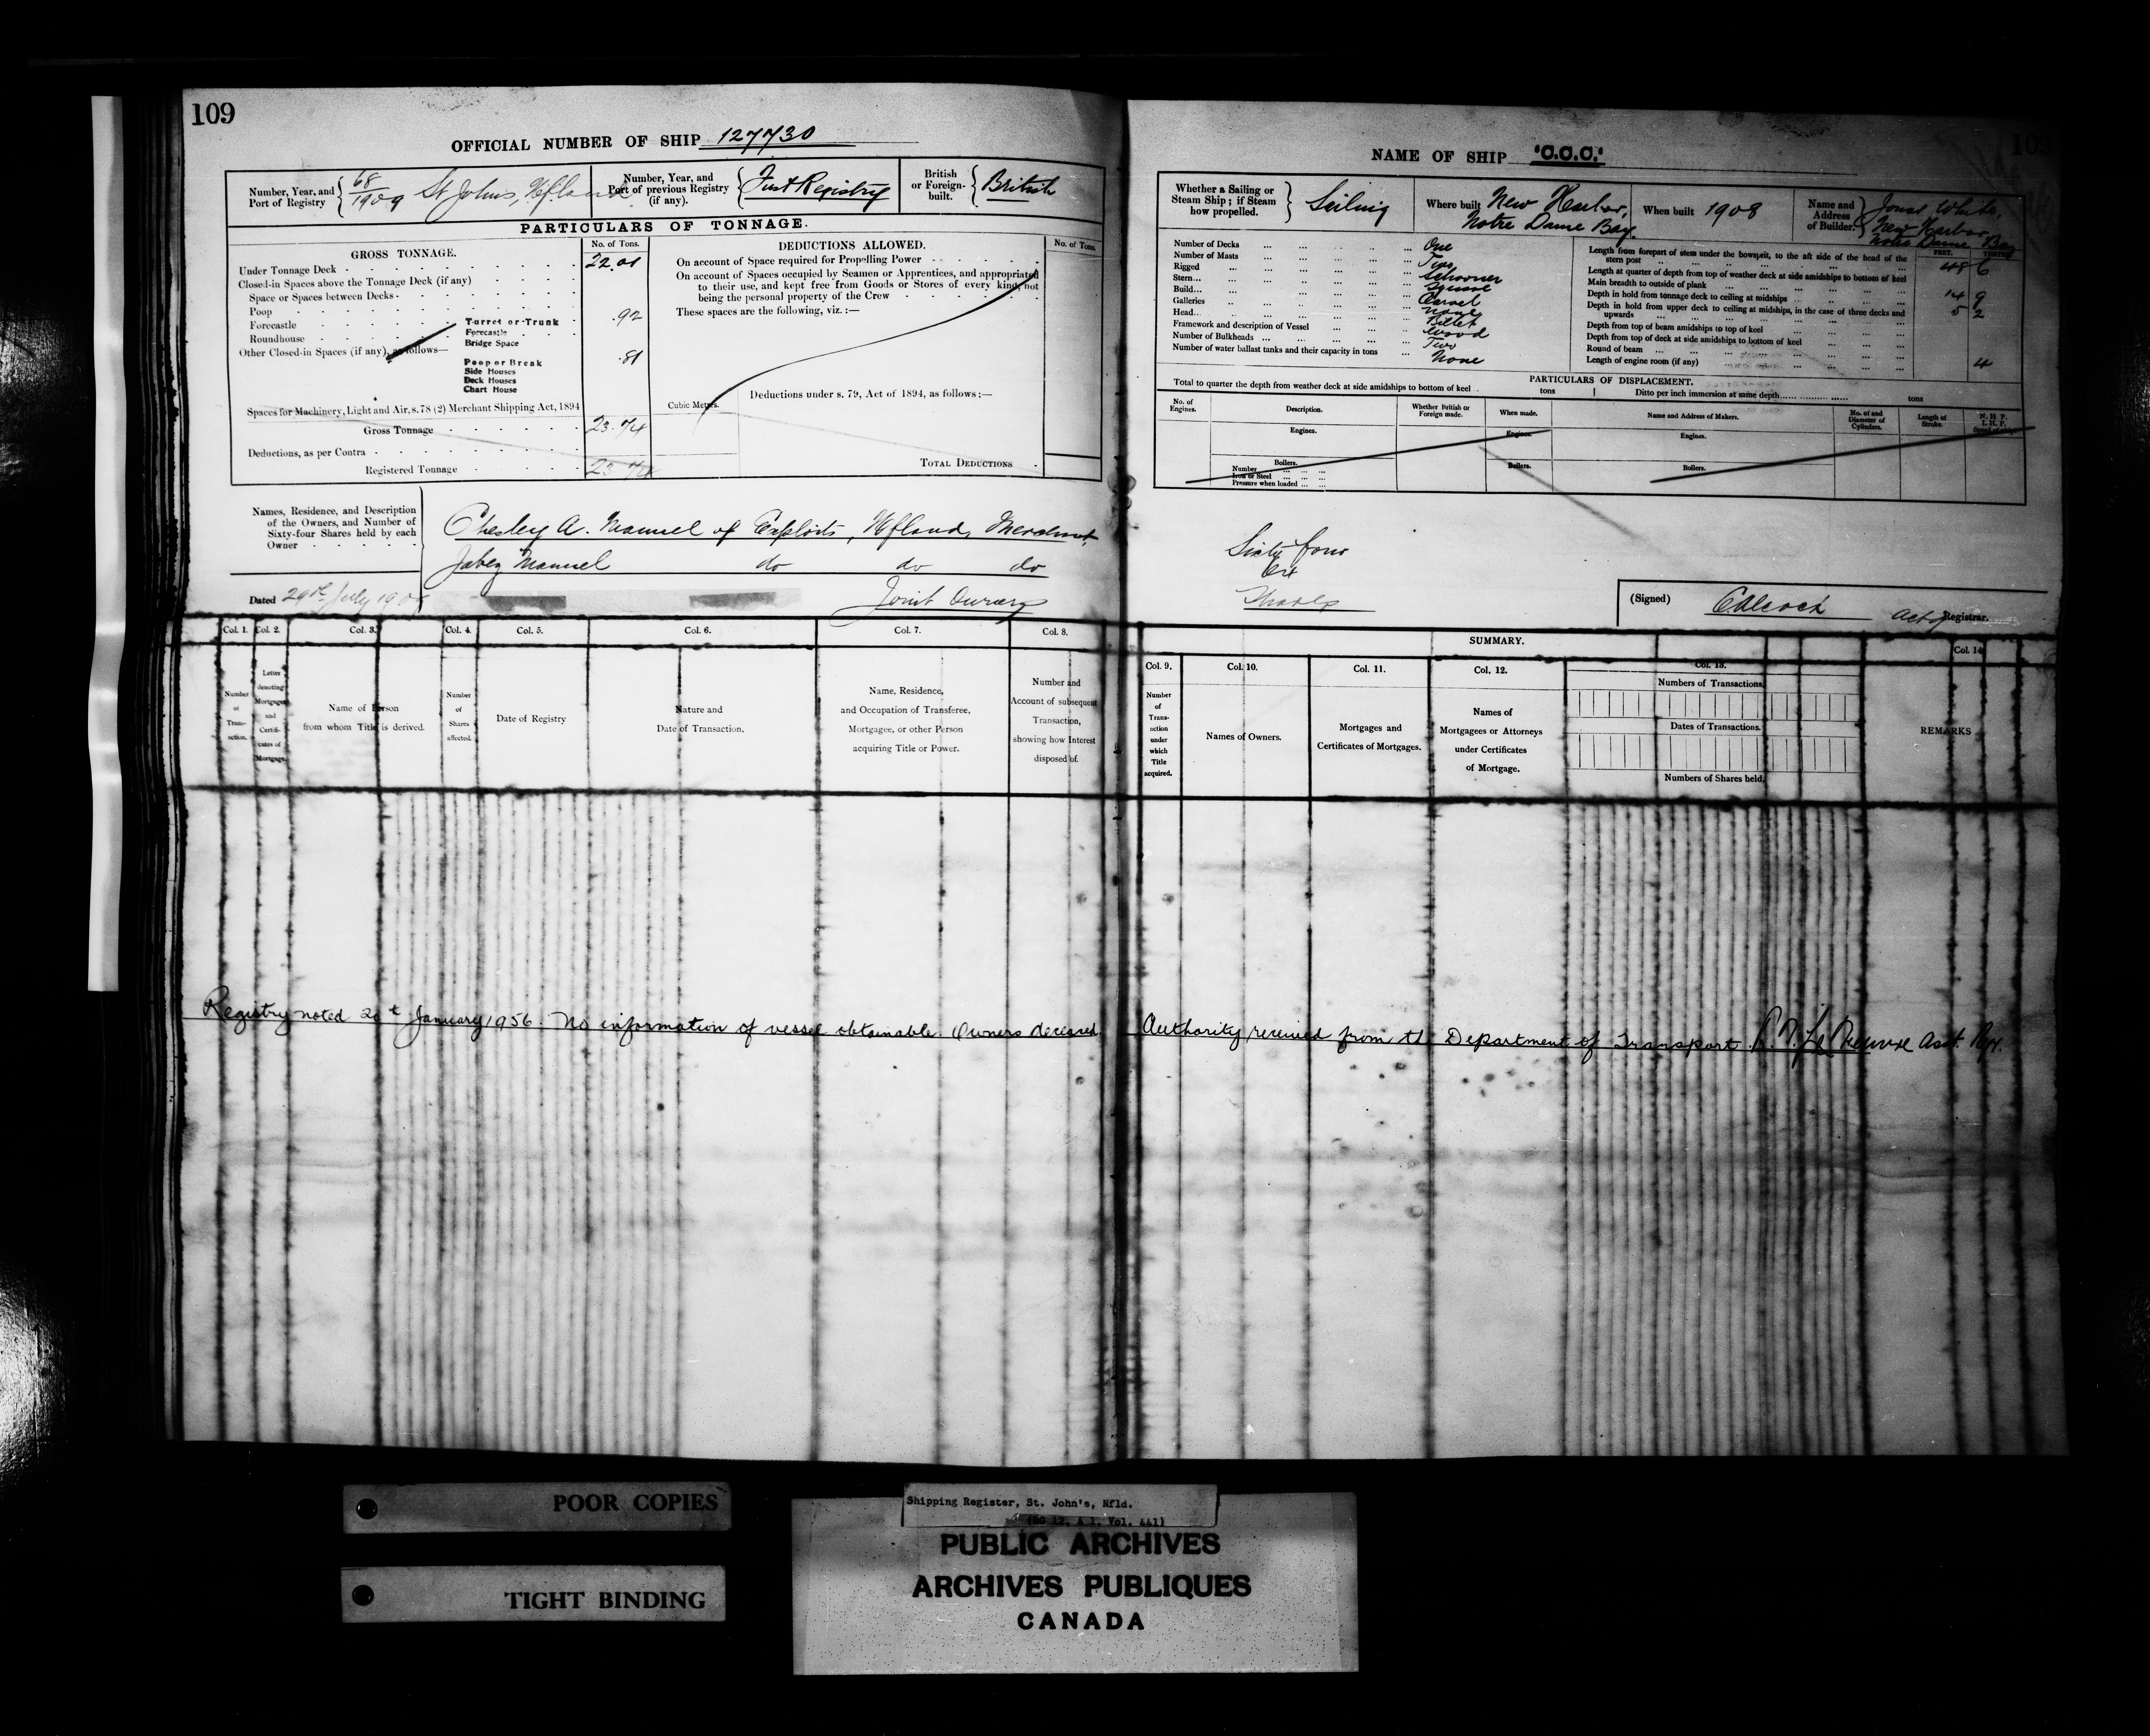 109
OFFICIAL NUMBER OF SHIP 127730
Number, Year, and Port of Registry 68/1909 St Johns, Nfland
Number, Year, and Port of previous Registry (if any). First Registry
British or Foreign-built. British
PARTICULARS OF TONNAGE.
GROSS TONNAGE.
No. of Tons.
Under Tonnage Deck 22.01
Closed-in Spaces above the Tonnage Deck (if any)
Space or Spaces between Decks
Poop
Forecastle
Roundhouse
Other Closed-in Spaces (if any), as follows—
Turret or Trunk .92
Forecastle
Bridge Space
Poop or Break .81
Side Houses
Deck Houses
Chart House
Spaces for Machinery, Light and Air, s. 78 (2) Merchant Shipping Act, 1894
Gross Tonnage 23.74
Deductions, as per Contra
Registered Tonnage 23.74
DEDUCTIONS ALLOWED.
No. of Tons.
On account of Space required for Propelling Power
On account of Spaces occupied by Seamen or Apprentices, and appropriated
to their use, and kept free from Goods or Stores of every kind, not
being the personal property of the Crew
These spaces are the following, viz.:—
Cubic Metres.
Deductions under s. 79, Act of 1894, as follows:—
TOTAL DEDUCTIONS
Names, Residence, and Description
of the Owners, and Number of
Sixty-four Shares held by each
Owner
Chesley A. Manuel of Exploits, Nfland, Merchant
Jabez Manuel do do do
Joint Owners
Dated 29th July 1909
Col. 1. Col. 2. Col. 3. Col. 4. Col. 5. Col. 6. Col. 7. Col. 8.
Number of Transaction.
Letter denoting Mortgages and Certificates of Mortgage.
Name of Person from whom Title is derived.
Number of Shares affected.
Date of Registry
Nature and Date of Transaction.
Name, Residence, and Occupation of Transferee, Mortgagee, or other Person acquiring Title or Power.
Number and Account of subsequent Transaction, showing how Interest disposed of.
Registry noted January 1956. No information of vessel obtainable. Owners deceased
109
NAME OF SHIP "O.O.O."
Whether a Sailing or Steam Ship; if Steam how propelled. Sailing
Where built New Harbor, Notre Dame Bay
When built 1908
Name and Address of Builder. Jonas White, New Harbor, Notre Dame Bay
Number of Decks One
Number of Masts Two
Rigged Schooner
Stern Square
Build Carvel
Galleries None
Head Billet
Framework and description of Vessel Wood
Number of Bulkheads Two
Number of water ballast tanks and their capacity in tons None
FEET. TENTHS
Length from forepart of stem under the bowsprit, to the aft side of the head of the stern post 48 6
Length at quarter of depth from top of weather deck at side amidships to bottom of keel
Main breadth to outside of plank 14 9
Depth in hold from tonnage deck to ceiling at midships 5 2
Depth in hold from upper deck to ceiling at midships, in the case of three decks and upwards
Depth from top of beam amidships to top of keel
Depth from top of deck at side amidships to bottom of keel
Round of beam 4
Length of engine room (if any)
PARTICULARS OF DISPLACEMENT.
Total to quarter the depth from weather deck at side amidships to bottom of keel tons
Ditto per inch immersion at same depth tons
No. of Engines.
Description.
Whether British or Foreign made.
When made.
Name and Address of Makers.
No. of and Diameter of Cylinders.
Length of Stroke.
N. H. P.
I. H. P.
Speed of ship
Engines.
Engines.
Engines.
Boilers.
Number
Iron or Steel
Pressure when loaded
Boilers.
Boilers.
Sixty four
Shares
(Signed) Registrar.
SUMMARY.
Col. 9. Col. 10. Col. 11. Col. 12. Col. 13. Col. 14
Number of Transaction under which Title acquired.
Names of Owners.
Mortgages and Certificates of Mortgages.
Names of Mortgagees or Attorneys under Certificates of Mortgage.
Numbers of Transactions.
Dates of Transactions.
Numbers of Shares held.
REMARKS
Authority received from the Department of Transport. Asst. Rgr.
POOR COPIES
TIGHT BINDING
Shipping Register, St. John's, Nfld.
(RG 12, A 1, Vol. 441)
PUBLIC ARCHIVES
ARCHIVES PUBLIQUES
CANADA